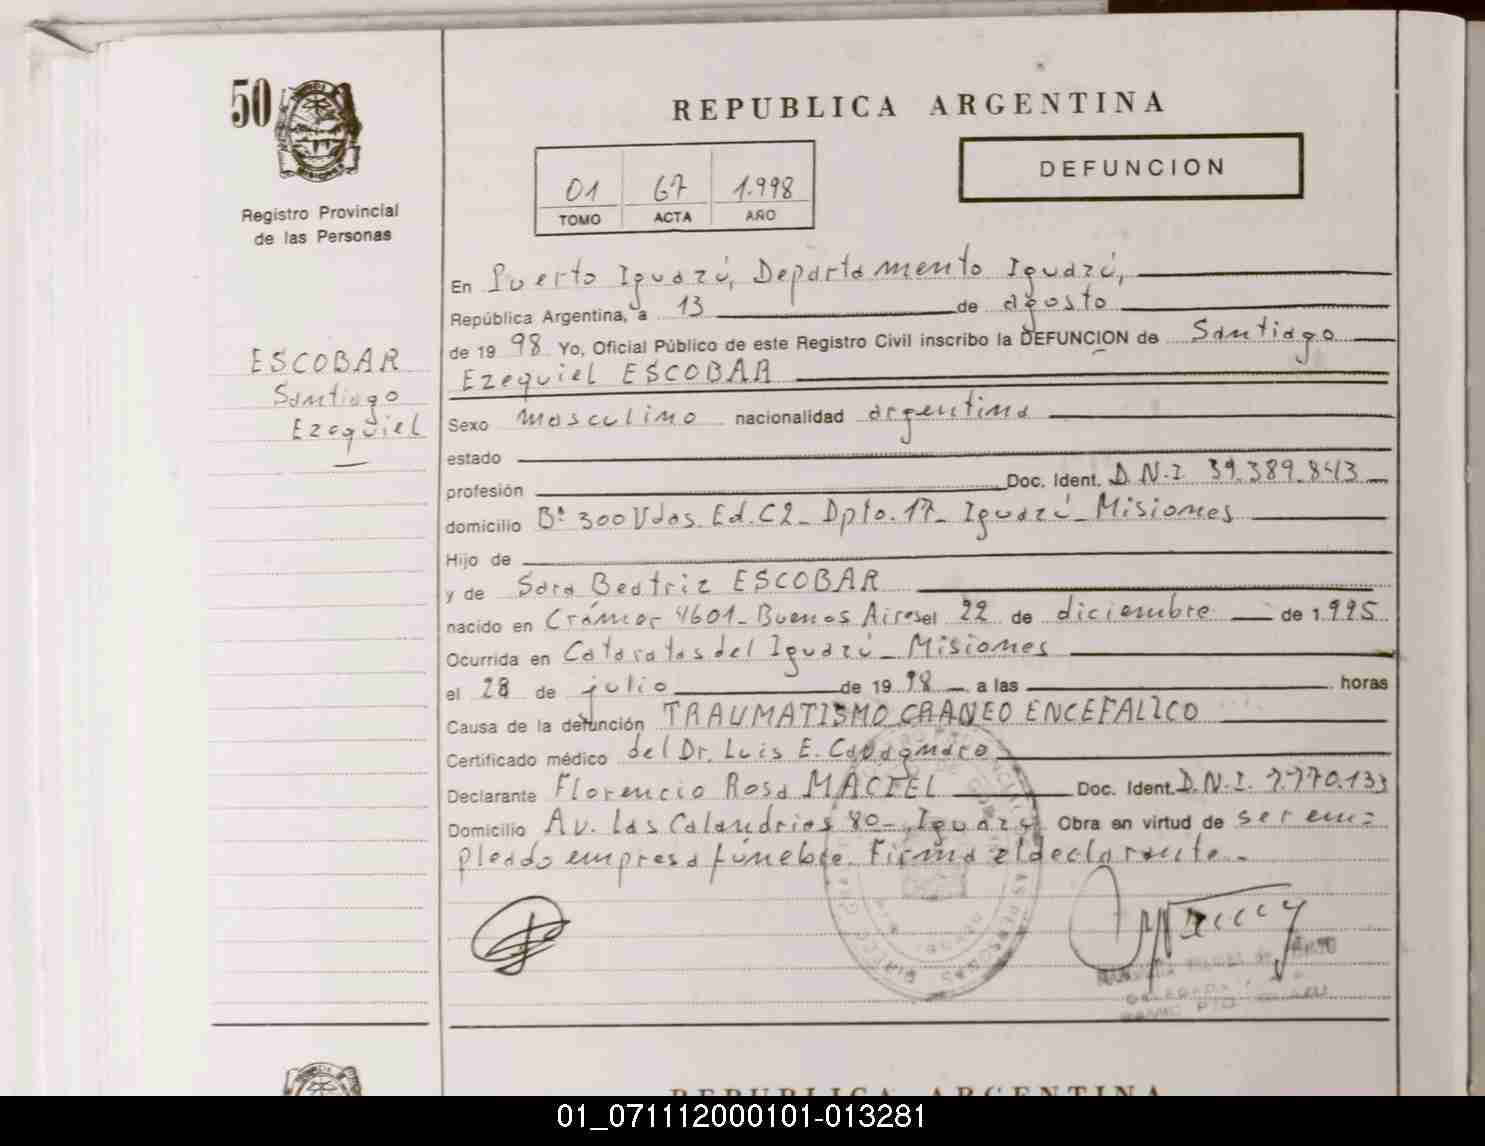 50
REPUBLICA ARGENTINA
DEFUNCION
01 67 1.998
TOMO ACTA AÑO
Registro Provincial
de las Personas
ESCOBAR
Santiago
Ezequiel
En Puerto Iguazú, Departamento Iguazú,
República Argentina, a 13 de agosto
de 19 98 Yo, Oficial Público de este Registro Civil inscribo la DEFUNCION de Santiago
Ezequiel ESCOBAR
Sexo masculino nacionalidad argentina
estado
profesión Doc. Ident. D.N.I. 39.389.843
domicilio Bº 300 Vdas. Ed. C2_ Dpto. 17_ Iguazú_ Misiones
Hijo de
y de Sara Beatriz ESCOBAR
nacido en Crámer 4601_ Buenos Aires el 22 de diciembre de 1.995
Ocurrida en Cataratas del Iguazú_ Misiones
el 28 de julio de 19 98 a las horas
Causa de la defunción TRAUMATISMO CRANEO ENCEFALICO
Certificado médico del Dr. Luis E. Cavagnaro
Declarante Florencio Rosa MACIEL Doc. Ident. D.N.I. 7.770.133
Domicilio Av. Las Calandrias 80_, Iguazú Obra en virtud de ser em=
pleado empresa fúnebre. Firma el declarante._
REPUBLICA ARGENTINA
01_071112000101-013281